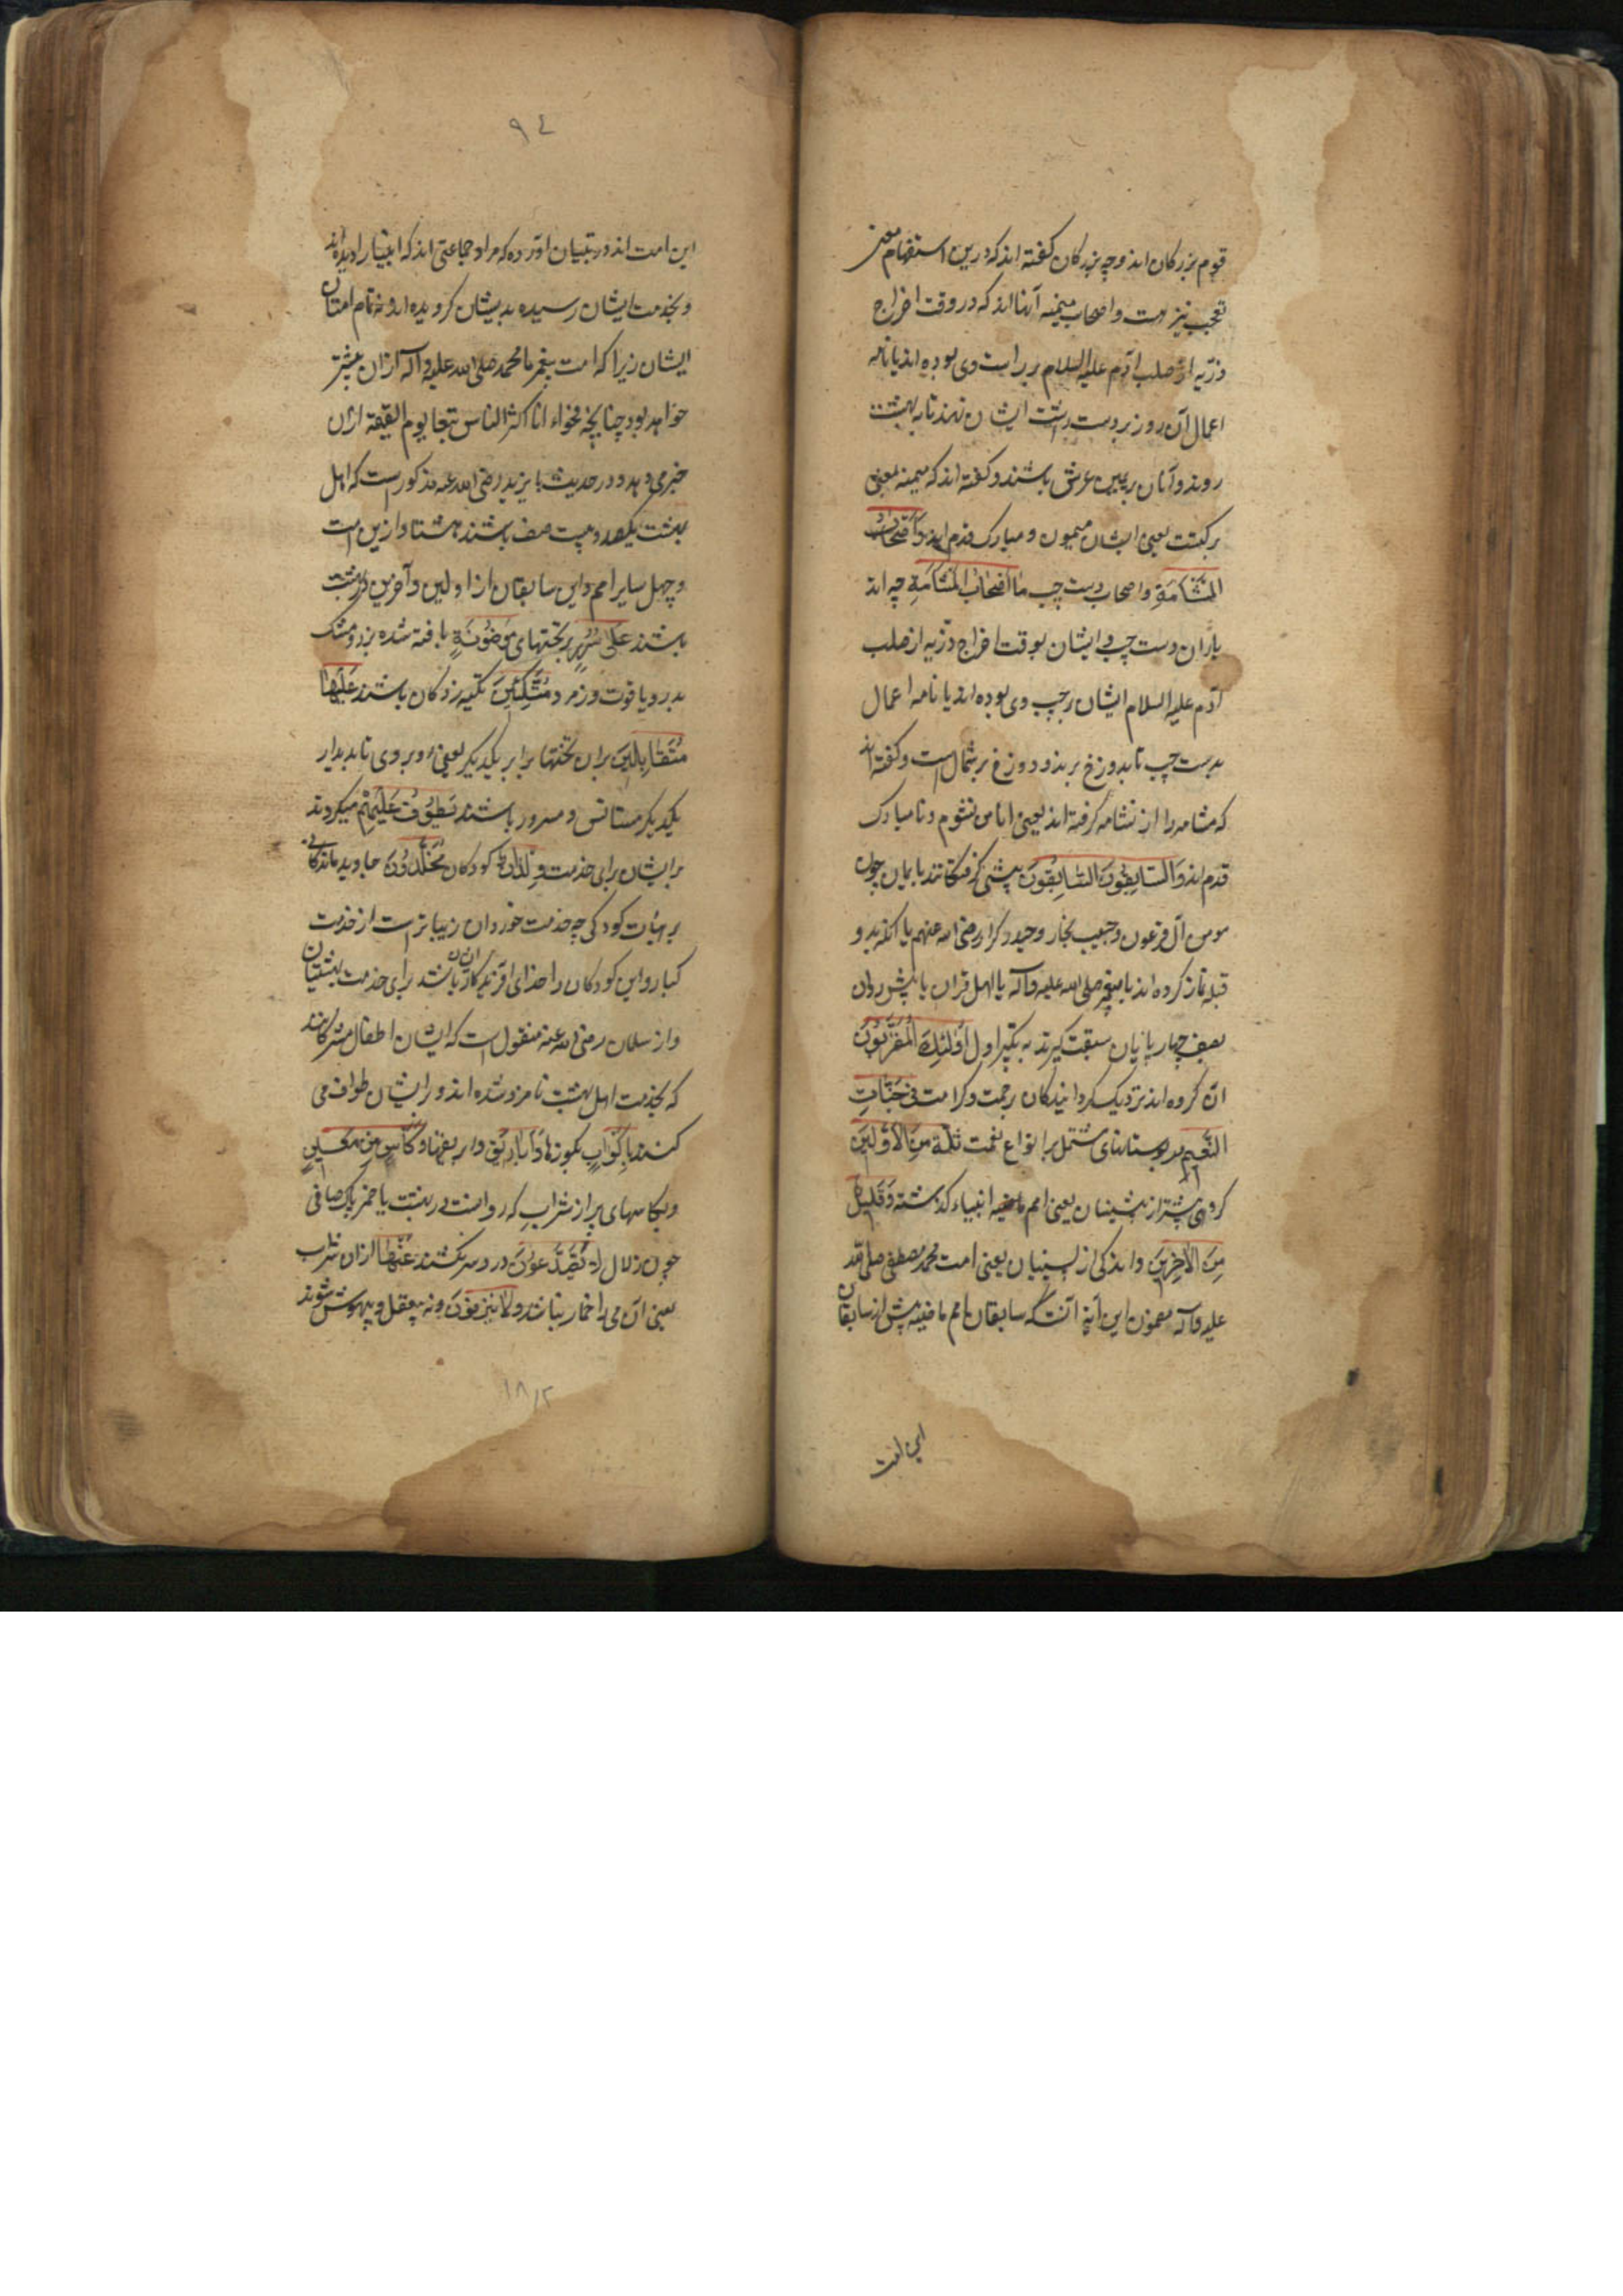 قوم بزرگان اند وچه بزرگان گفته اند که درین استفهام معنی
تعجب نیز هست واصحاب میمنه آنها اند که در وقت اخراج
ذریه از صلب آدم علیه السلام بر راست وی بوده اند یا نامه
اعمال آن روز بر دست راست ایشان نهند تا به بهشت
روند وآنان بر یمین عرش باشند وگفته اند که میمنه بمعنی
برکتست یعنی ایشان میمون و مبارک قدم اند وَأَصْحَابُ
الْمَشْأَمَةِ واصحاب دست چپ مَا أَصْحَابُ الْمَشْأَمَةِ چه اند
یاران دست چپ وایشان بوقت اخراج ذریه از صلب
آدم علیه السلام ایشان بر چپ وی بوده اند یا نامه اعمال
بدست چپ تا بدوزخ برند و دوزخ بر شمال است وگفته اند
که مشامه را از نشامه گرفته اند یعنی اناس نشوم ونامبارک
قدم اند وَالسَّابِقُونَ السَّابِقُونَ پیشی گرفتگانند بایمان چون
مومن آل فرعون وحبیب نجار وحیدر کرار رضی الله عنهم یا آنکه بدو
قبله نماز کرده اند با پیغمبر صلی الله علیه وآله یا اهل قران یا پیش روان
بصف جهاد یا زیان سبقت گیرند به تکبیر اول أُولَئِكَ الْمُقَرَّبُونَ
آن گروه اند نزدیک گردانیدگان برحمت وکرامت فِي جَنَّاتِ
النَّعِيمِ در بوستانهای مشتمل بر انواع نعمت ثُلَّةٌ مِنَ الْأَوَّلِينَ
گروهی بیشتر از پیشینیان یعنی امم ماضیه انبیاء گذشته وَقَلِيلٌ
مِنَ الْآخِرِينَ واندکی از پسینیان یعنی امت محمد مصطفی صلی الله
علیه وآله مضمون این آیه آنست که سابقان امم ماضیه بیش از سابقان
این امت
٩٤
این امت اند ودر تبیان آورده که مراد جماعتی اند که انبیا را دیده اند
وبخدمت ایشان رسیده بدیشان گرویده اند ونه تمام امتان
ایشان زیرا که امت پیغمبر ما محمد صلی الله علیه وآله از آن بیشتر
خواهد بود چنانچه فحواء انا اکثر الناس تبعا یوم القیمة ازان
خبر می دهد ودر حدیث با یزید رضی الله عنه مذکور است که اهل
بهشت یکصد وبیست صف باشند هشتاد ازین امت
وچهل سایر امم واین سابقان از اولین وآخرین در بهشت
باشند عَلَى سُرُرٍ بر تختهای مَوْضُونَةٍ بافته شده بزر ومشک
بدر ویاقوت وزمرد مُتَّكِئِينَ تکیه زدگان باشند عَلَيْهَا
مُتَقَابِلِينَ بران تختها برابر یکدیگر یعنی روبروی تا بدیدار
یکدیگر مستانس و مسرور باشند يَطُوفُ عَلَيْهِمْ میگردند
بر ایشان برای خدمت وِلْدَانٌ کودکان مُخَلَّدُونَ جاوید ماندگان
بر هیات کودکی چه خدمت خوردان زیباتر است از خدمت
کبار واین کودکان را خدای آفریده باشد برای خدمت بهشتیان
واز سلمان رضی الله عنه منقول است که ایشان اطفال مشرکانند
که بخدمت اهل بهشت نامزد شده اند وبر ایشان طواف می
کنند بِأَكْوَابٍ بکوزها وَأَبَارِيقَ وابریقها وَكَأْسٍ مِنْ مَعِينٍ
وبکاسهای پر از شراب که روانست در بهشت یا خمر پاک صافی
چون زلال لَا يُصَدَّعُونَ درد سر نکشند عَنْهَا ازان شراب
یعنی آن می را خمار نباشد وَلَا يُنْزِفُونَ ونه بیعقل وبیهوش شوند
١٨/٢